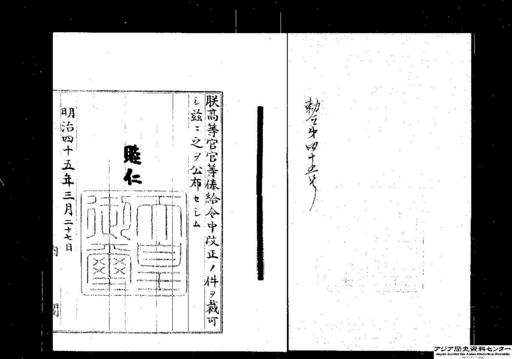 勅令第四十五号
朕高等官官等俸給令中改正ノ件ヲ裁可
シ玆ニ之ヲ公布セシム
睦仁
天皇御璽
明治四十五年三月二十七日
内閣
アジア歴史資料センター
Japan Center for Asian Historical Records